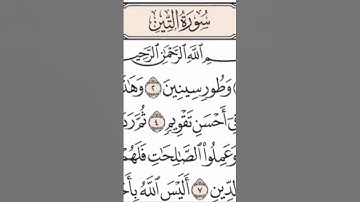 سُورَةُ التِّينِ
مِ اللَّهِ الرَّحْمَٰنِ الرَّحِي
وَطُورِ سِينِينَ ٢ وَهَٰذَ
فِي أَحْسَنِ تَقْوِيمٍ ٤ ثُمَّ رَدَ
وَعَمِلُوا الصَّالِحَاتِ فَلَهُمْ
لدِّينِ ٧ أَلَيْسَ اللَّهُ بِأَحْ